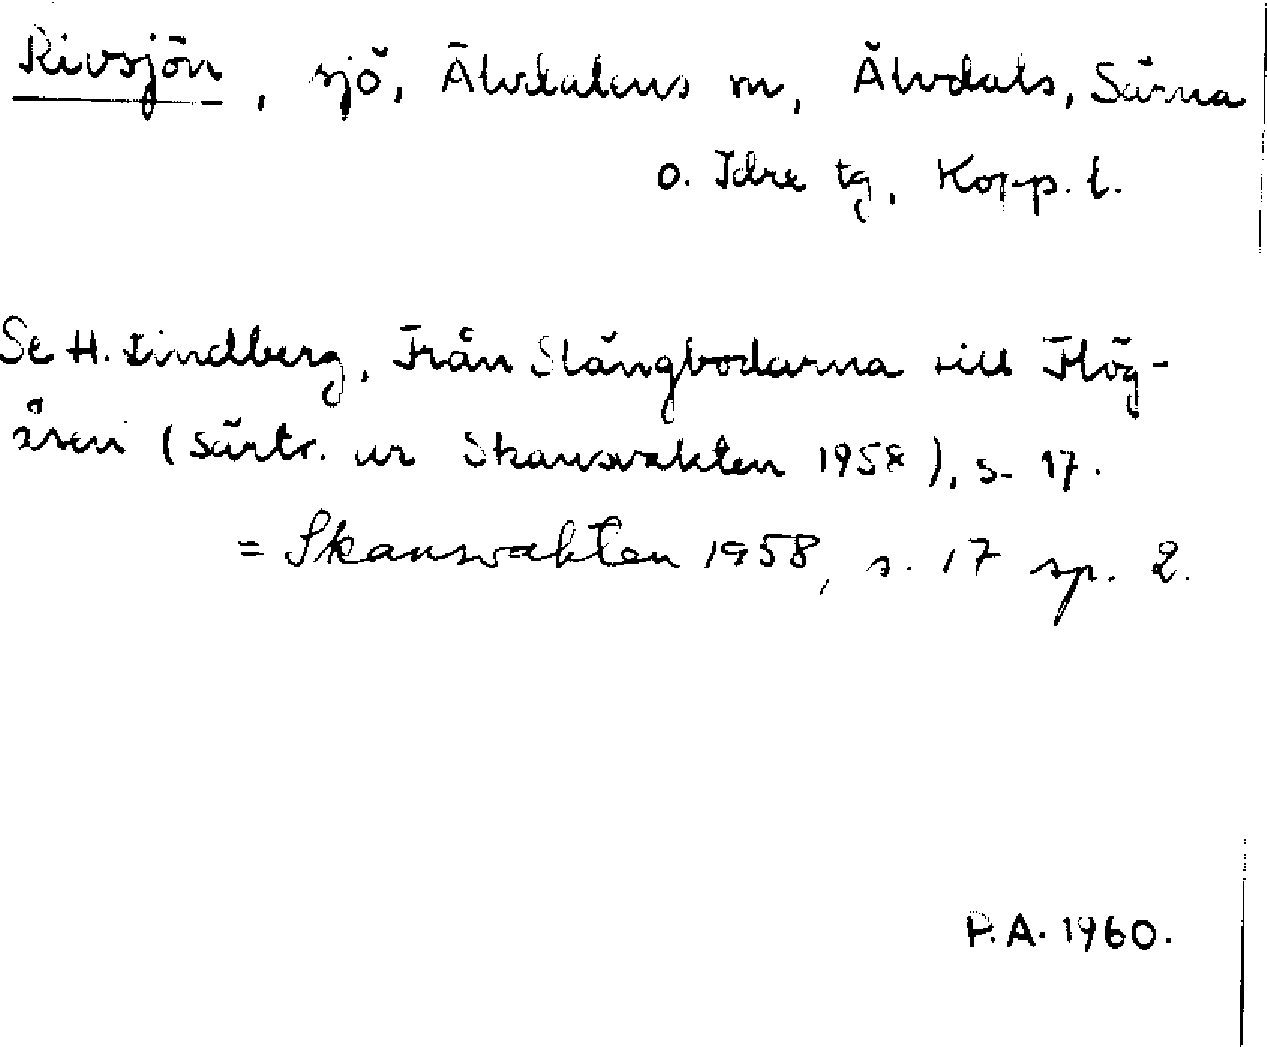 Rivsjön, sjö, Älvdalens sn, Älvdals, Särna
o. Idre tg, Kopp. l.
Se H. Lindberg, Från Slängbodarna till Flög-
åsen (särtr. ur Skansvakten 1958), s. 17.
= Skansvakten 1958, s. 17 sp. 2.
P.A. 1960.